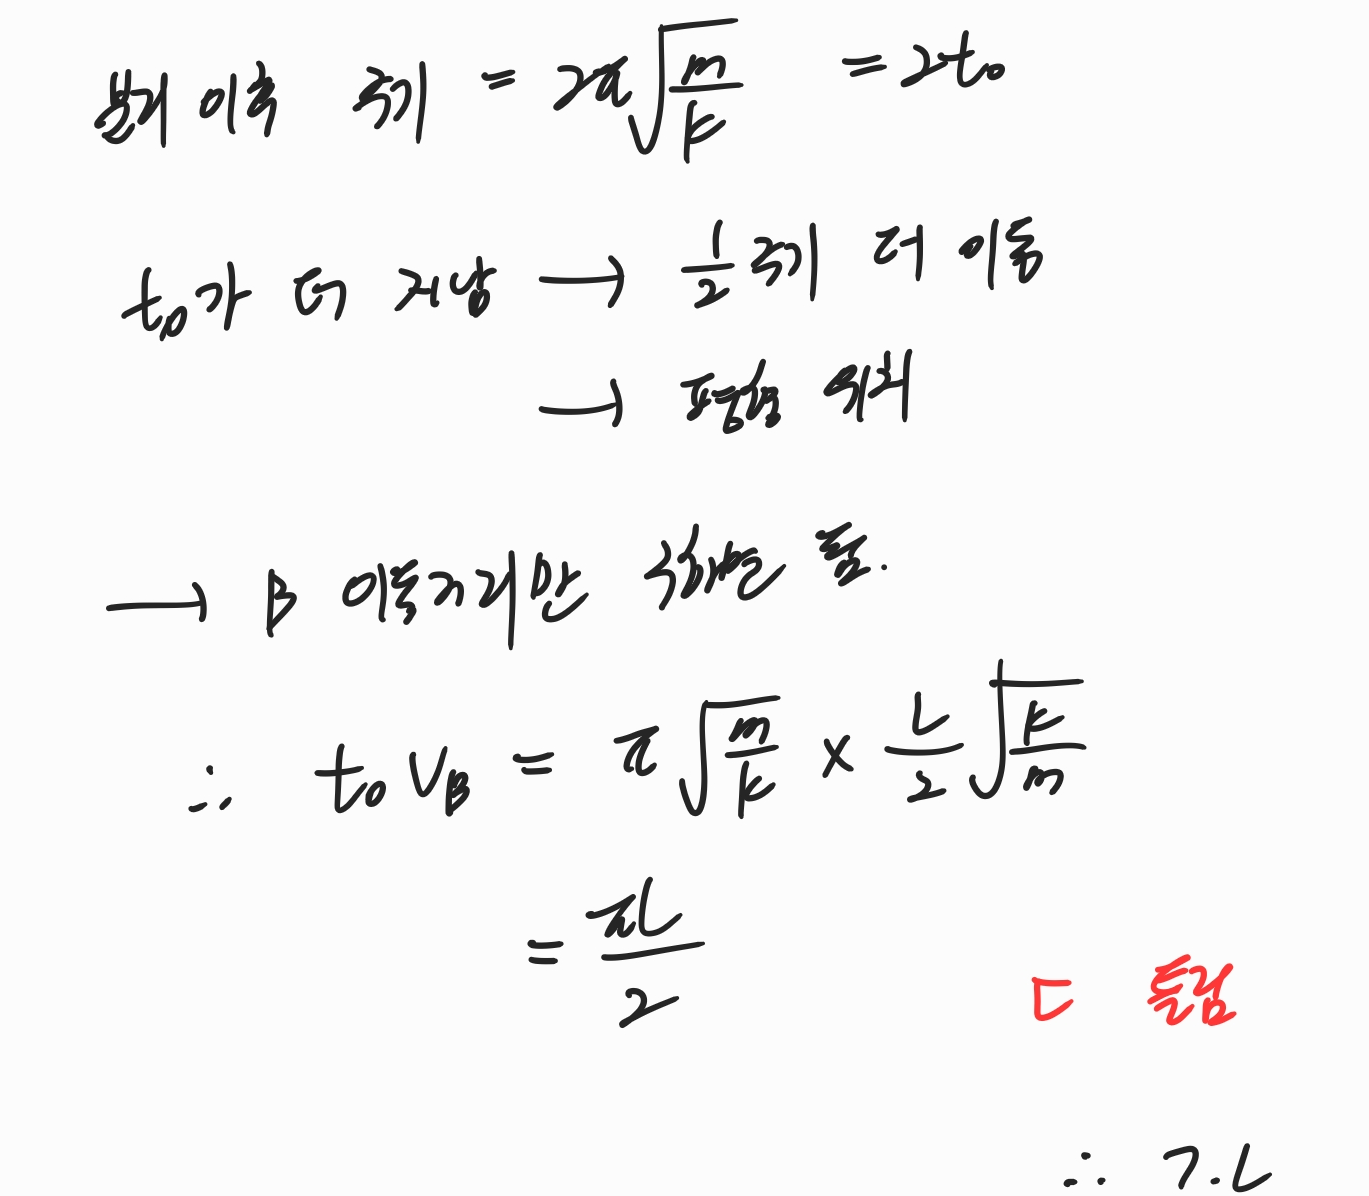 분리 이후 주기 = 2π√(m/k) = 2t₀
t₀가 더 지남 → 1/2 주기 더 이동
→ 평형 위치
→ B 이동거리만 구하면 됨.
∴ t₀ V_B = π√(m/k) × L/2 √(k/m)
= πL/2
ㄷ 틀림
∴ ㄱ.ㄴ